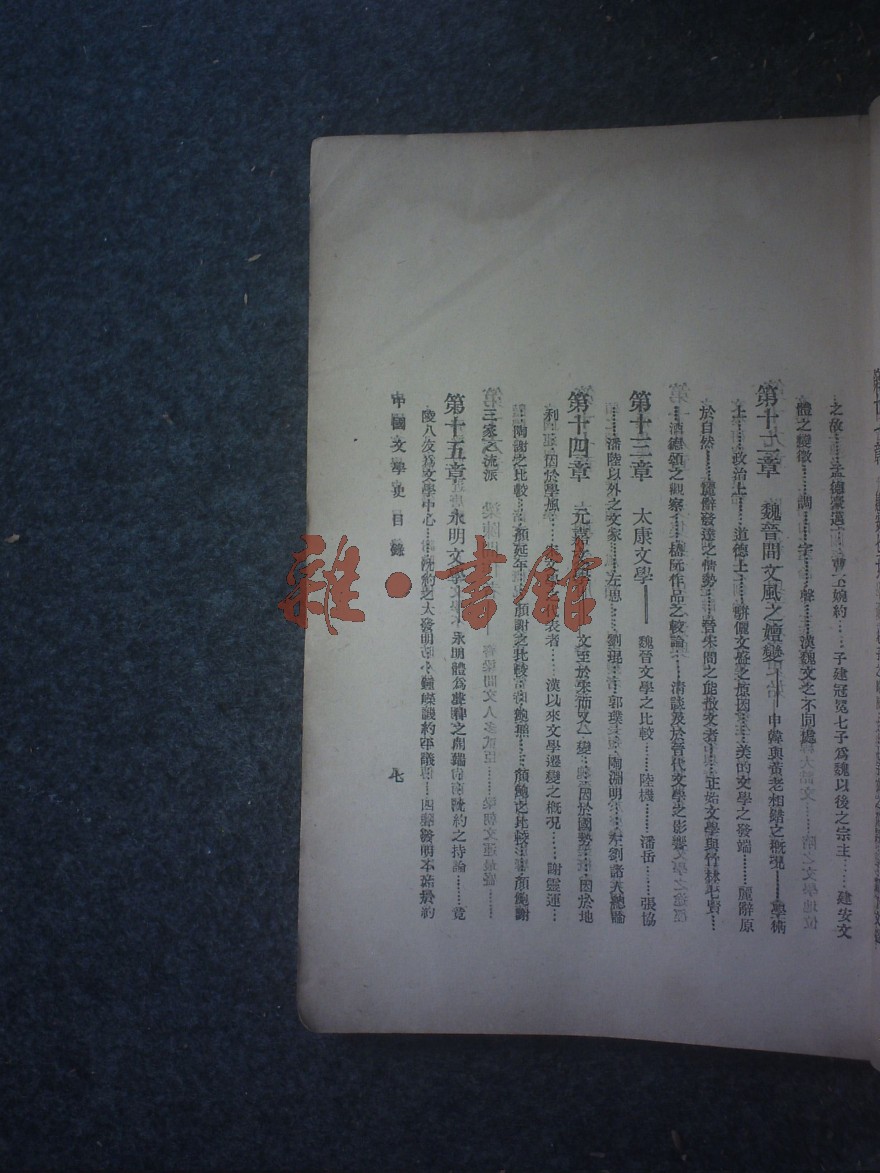 之故……孟德豪邁……曹丕婉約……子建冠冕七子爲魏以後之宗主……建安文
體之變徵……調……字……聲……漢魏文之不同處
第十二章 魏晉間文風之嬗變——申韓與黃老相錯之概況……學術
上……政治上……道德上……駢儷文盛之原因……美的文學之發端……麗辭原
於自然……麗辭發達之情勢……晉宋間之能散文者……正始文學與竹林七賢…
…酒總領之觀察……嵇阮作品之較論……清談及於晉代文學之影響
第十三章 太康文學——魏晉文學之比較……陸機……潘岳……張協
……潘陸以外之文家……左思……劉琨……郭璞……陶淵明……左劉諸人總論
第十四章 元嘉文學——文至於宋而又一變……因於國勢……因於地
利……因於學風……宋文學之代表者……漢以來文學遷變之概況……謝靈運…
…陶謝之比較……顏延年……顏謝之比較……鮑照……顏鮑之比較……顏鮑謝
三家之流派
第十五章 永明文學——永明體爲聲律之開端……沈約之持論……竟
陵八友爲文學中心……沈約之大發明……鍾嶸譏約平議……四聲發明本始於約
中國文學史 目錄
七
雜·書館